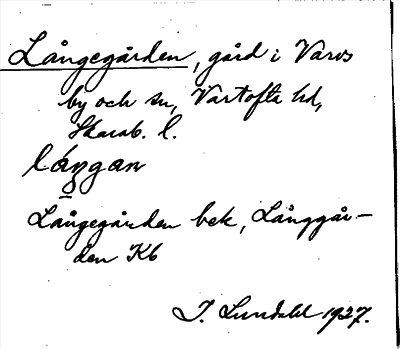 Långegården, gård i Varvs
by och sn, Vartofta hd,
Skarab. l.
låŋgan
Långegården bek, Långgår-
den Kb
I. Lundahl 1927.